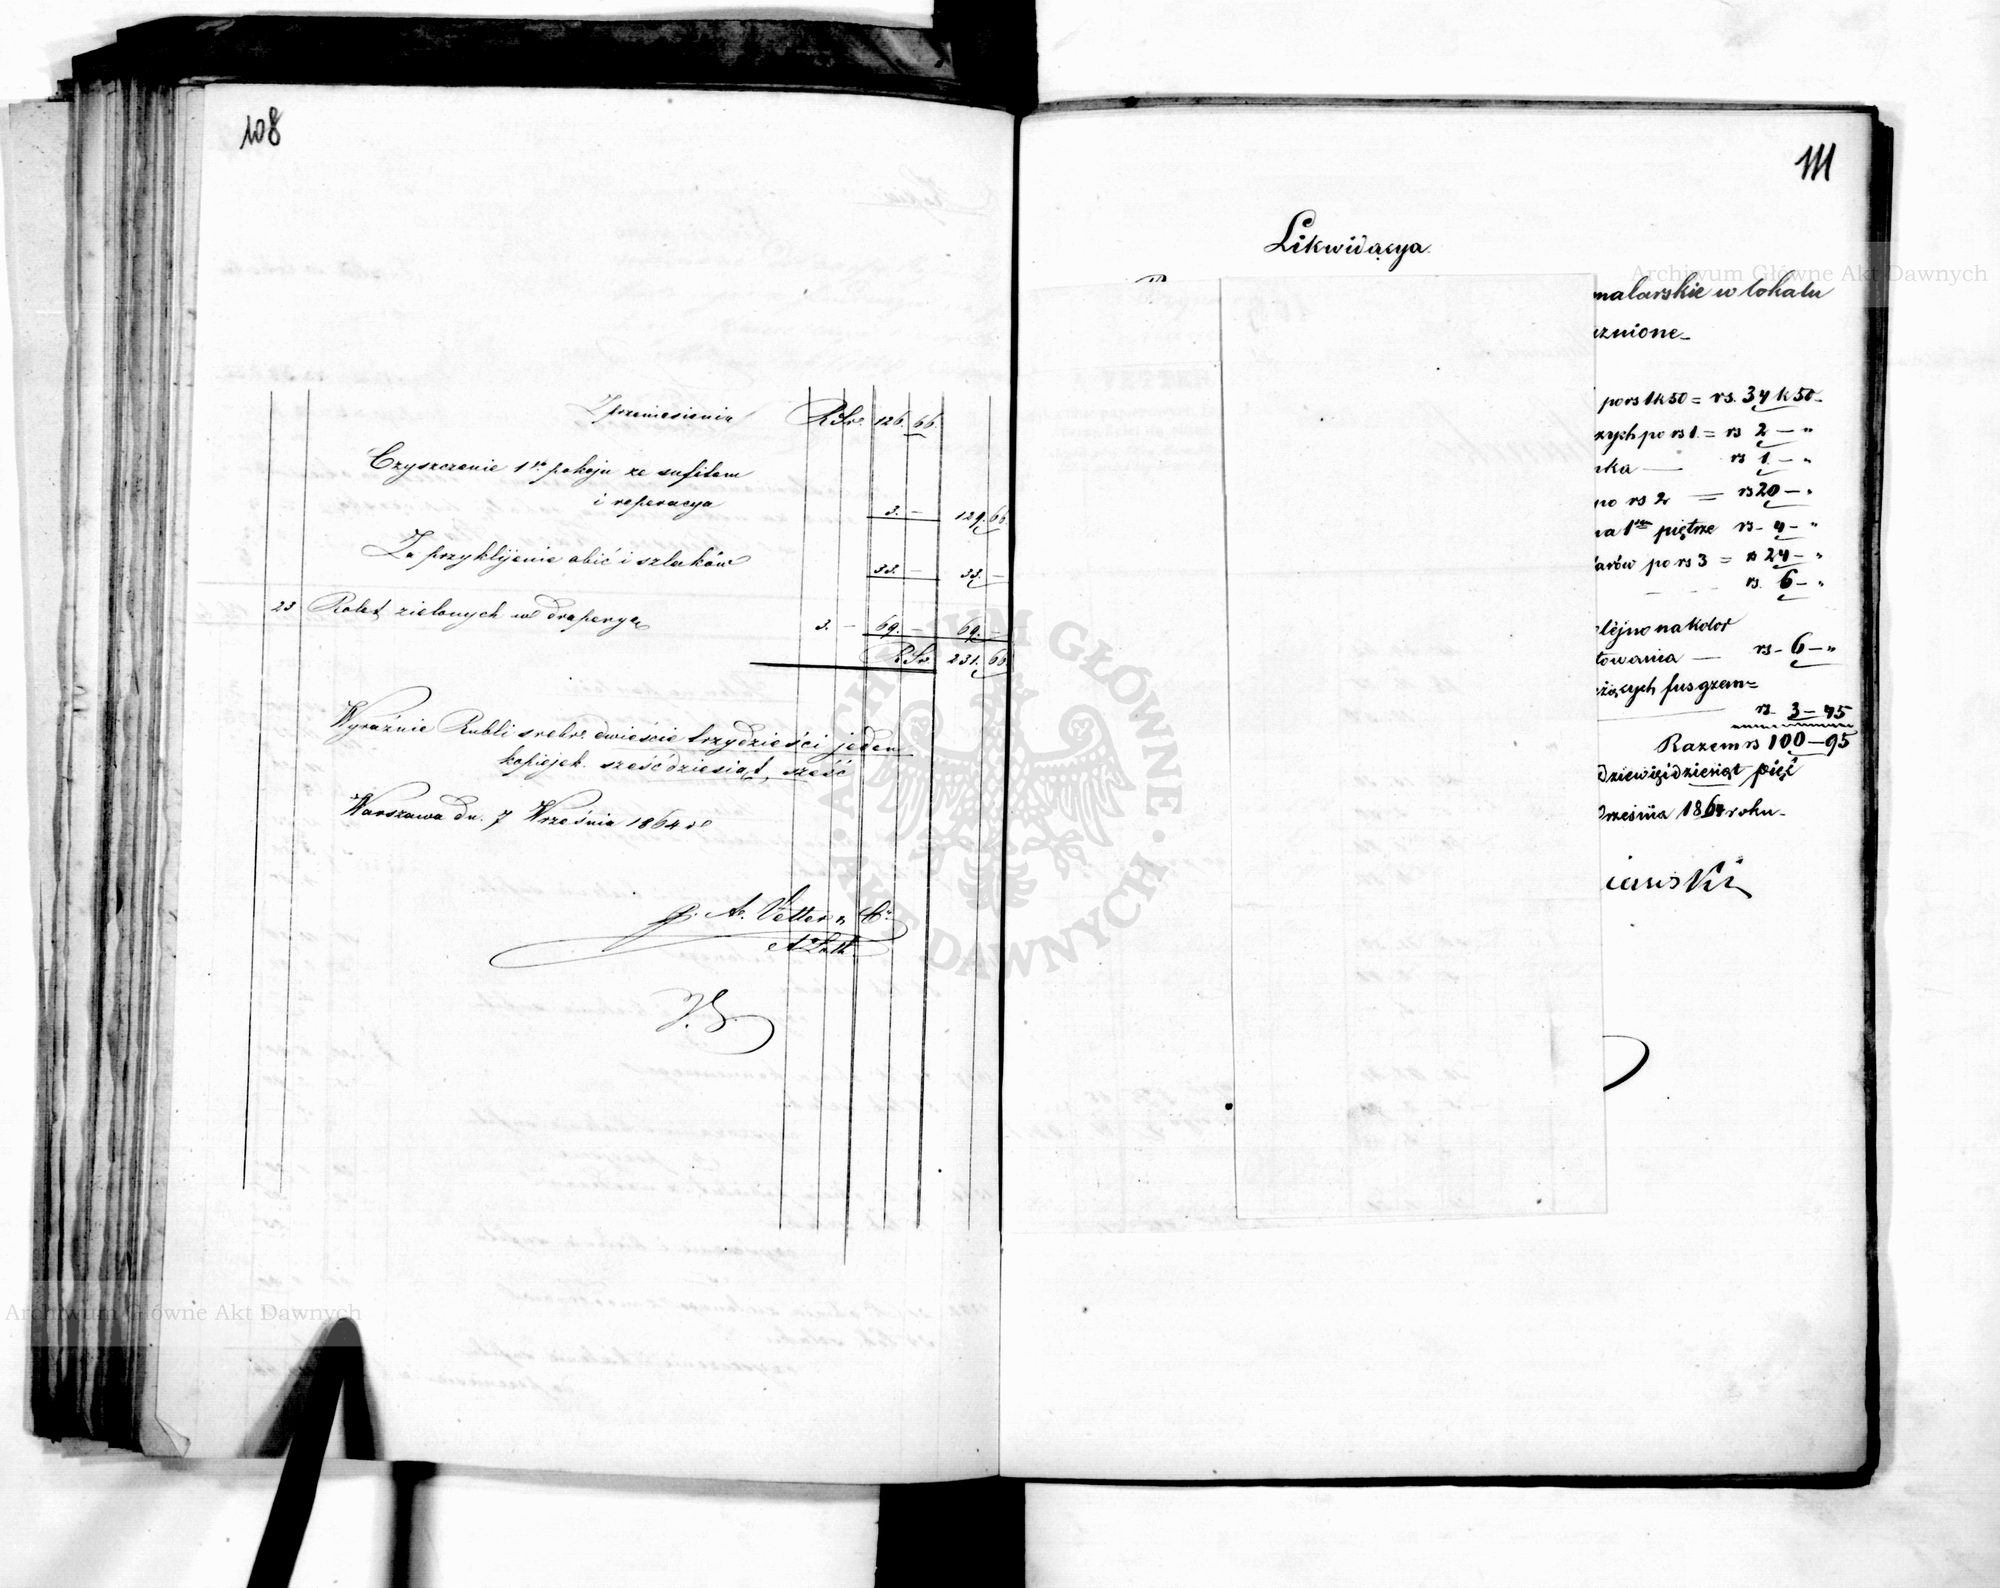 108
Z przeniesienia RSr. 126. 66.
Czyszczenie 1go pokoju ze sufitem
i reperacya 3. — 129. 66.
Za przyklijenie obić i szlaków 33. — 33. —
23 Rolet zielonych w draperye 3. — 69. — 69. —
RSr. 231. 66
Wyraźnie Rubli srebr. dwieście trzydzieści jeden
kopiejek sześćdziesiąt, sześć
Warszawa dn. 7 Września 1864 r.
A. Vetter & Co.
111
Likwidacya.
malarskie w lokalu
znione
po rs 1 k 50 = rs. 34 k 50
zych po rs 1. = rs 2 — "
nka — rs 1. — "
po rs 2 = rs 20 — "
na 1em piętrze rs — 4 — "
arów po rs 3 = rs 24 — "
rs. 6 — "
lejno na kolor
towania — rs — 6 — "
żących fus grzem=
rs. 3 — 45
Razem rs 100 — 95
dziewięćdziesiąt pięć
rześnia 1864 roku
Archiwum Główne Akt Dawnych
Archiwum Główne Akt Dawnych
ARCHIWUM GŁÓWNE · AKT DAWNYCH ·